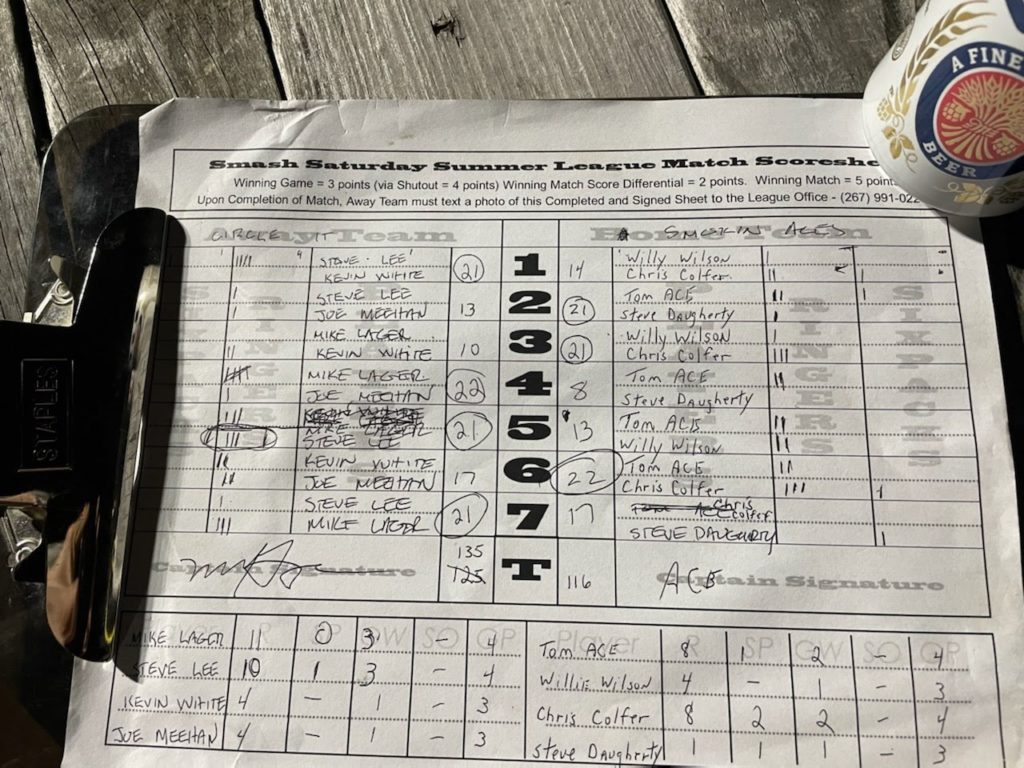 A FINE
BEER
STAPLES
Smash Saturday Summer League Match Scoreshe
Winning Game = 3 points (via Shutout = 4 points) Winning Match Score Differential = 2 points. Winning Match = 5 point
Upon Completion of Match, Away Team must text a photo of this Completed and Signed Sheet to the League Office - (267) 991-022
CIRCLE IT Away Team Home Team SMOKIN ACES
STEVE LEE 21 1 14 Willy Wilson
KEVIN WHITE Chris Colfer
STEVE LEE 13 2 21 Tom ACE
JOE MEEHAN Steve Daugherty
MIKE LAGER 10 3 21 Willy Wilson
KEVIN WHITE Chris Colfer
MIKE LAGER 22 4 8 Tom ACE
JOE MEEHAN Steve Daugherty
MIKE LAGER 21 5 13 Tom ACE
STEVE LEE Willy Wilson
KEVIN WHITE 17 6 22 Tom ACE
JOE MEEHAN Chris Colfer
STEVE LEE 21 7 17 Chris Colfer
MIKE LAGER STEVE DAUGHERTY
RINGERS RINGERS SIXPACKS
135
125 T 116
Captain Signature ACE Captain Signature
Player R SP GW SO GP
MIKE LAGER 11 0 3 - 4 Tom ACE 8 1 2 - 4
STEVE LEE 10 1 3 - 4 Willie Wilson 4 - 1 - 3
KEVIN WHITE 4 - 1 - 3 Chris Colfer 8 2 2 - 4
JOE MEEHAN 4 - 1 - 3 Steve Daugherty 1 1 1 - 3